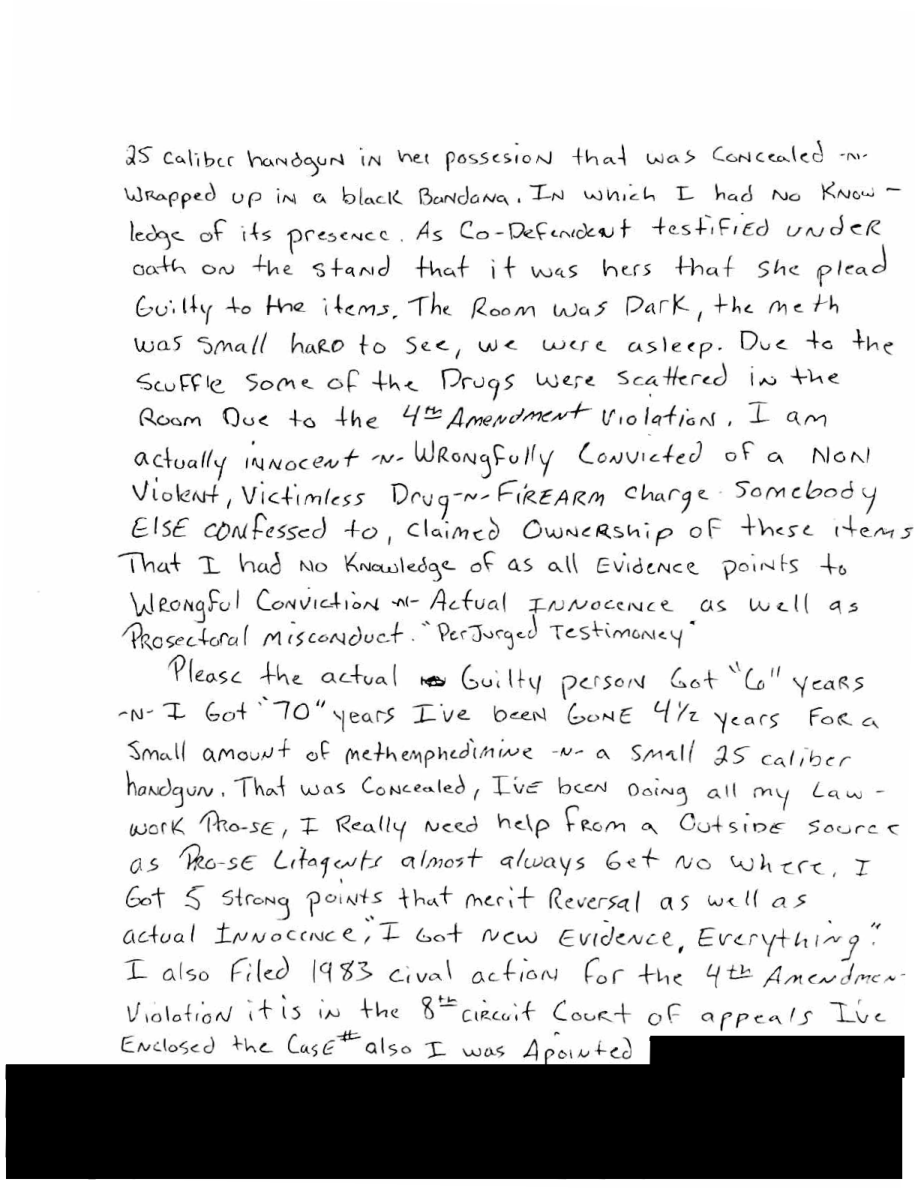 25 Caliber handgun in her possesion that was Concealed -n-
Wrapped up in a black Bandana. In which I had No Know-
ledge of its presence. As Co-Defendent testified under
oath on the stand that it was hers that she plead
Guilty to the items. The Room was Dark, the meth
was small hard to see, we were asleep. Due to the
Scuffle some of the Drugs were scattered in the
Room Due to the 4th Amendment Violation. I am
actually innocent -n- Wrongfully Convicted of a Non
Violent, Victimless Drug-n-Firearm charge. Somebody
Else confessed to, claimed Ownership of these items
That I had No Knowledge of as all Evidence points to
Wrongful Conviction -n- Actual Innocence as well as
Prosectoral misconduct. "PerJurged Testimoney"
Please the actual Guilty person Got "6" years
-n- I Got "70" years I've been Gone 4½ years For a
Small amount of methemphedimine -n- a small 25 caliber
handgun. That was Concealed, I've been Doing all my Law-
work Pro-se, I Really Need help from a Outside Source
as Pro-se Litagents almost always Get No Where, I
Got 5 Strong points that merit Reversal as well as
actual Innocence, "I Got New Evidence, Everything."
I also Filed 1983 cival action for the 4th Amendmen
Violation it is in the 8th circuit Court of appeals I've
Enclosed the Case# also I was Apointed